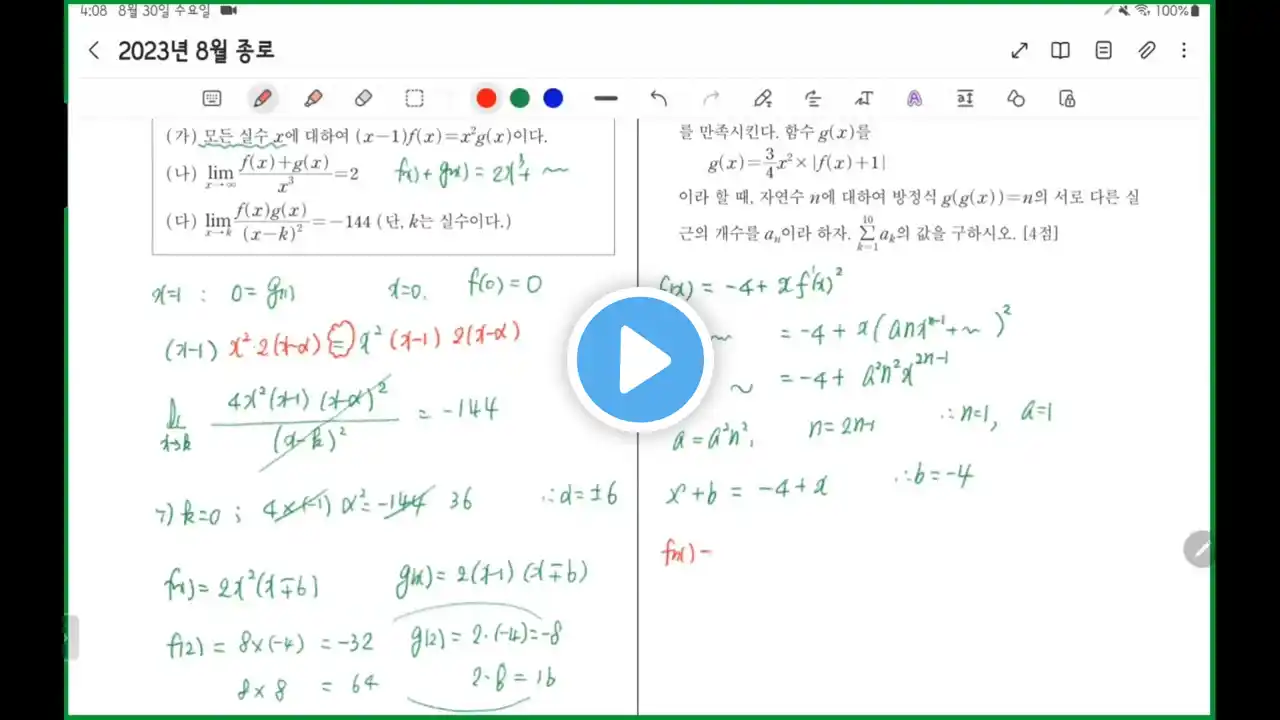 4:08 8월 30일 수요일 100%
2023년 8월 종로
(가) 모든 실수 x에 대하여 (x−1)f(x)=x²g(x)이다.
(나) lim x→∞ f(x)+g(x) / x³ =2
f(x)+g(x) = 2x³+ ~
(다) lim x→k f(x)g(x) / (x−k)² =−144 (단, k는 실수이다.)
x=1 : 0=g(1) x=0. f(0)=0
(x-1) x²·2(x-α) = x² (x-1) 2(x-α)
lim x→k 4x²(x-1)(x-α)² / (x-k)² = -144
ㄱ) k=0 ; 4×(-1) α²=-144 36 ∴α=±6
f(x)=2x²(x∓6) g(x)=2(x-1)(x∓6)
f(2) = 8×(-4) = -32 g(2)= 2·(-4)=-8
8×8 = 64 2·8=16
를 만족시킨다. 함수 g(x)를
g(x)=3/4 x²×|f(x)+1|
이라 할 때, 자연수 n에 대하여 방정식 g(g(x))=n의 서로 다른 실
근의 개수를 aₙ이라 하자. 10 Σ k=1 aₖ의 값을 구하시오. [4점]
f(x) = -4+ x f'(x)²
~ = -4 + x(anxⁿ⁻¹+~)²
~ = -4+ a²n²x²ⁿ⁻¹
a=a²n², n=2n-1 ∴n=1, a=1
x+b = -4+x ∴b=-4
f(x)-